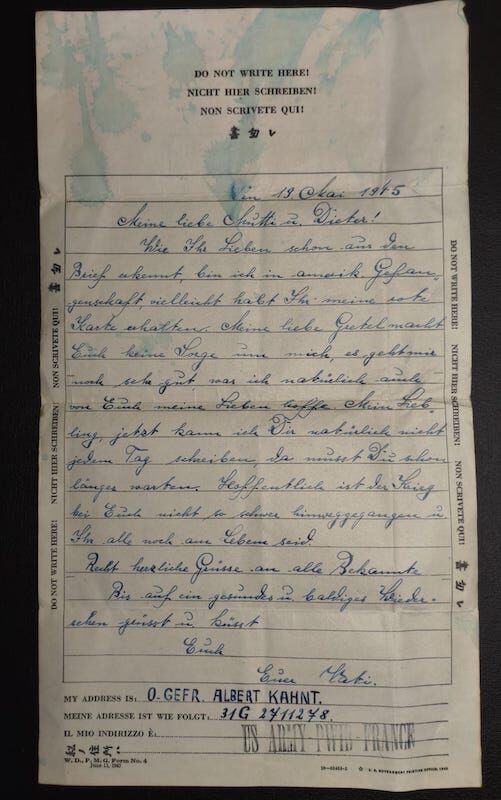 DO NOT WRITE HERE!
NICHT HIER SCHREIBEN!
NON SCRIVETE QUI!
書勿レ
19. Mai 1945
Meine liebe Mutti u. Dieter!
Wie Ihr Lieben schon aus den
Brief erkennt, bin ich in amerik Gefan-
genschaft vielleicht habt Ihr meine rote
Karte erhalten. Meine liebe Gretel macht
Euch keine Sorge um mich, es geht mir
noch sehr gut, was ich natürlich auch
von Euch meine Lieben hoffe. Mein Lieb-
ling, jetzt kann ich Dir natürlich nicht
jedem Tag schreiben, da musst Du schon
länger warten. Hoffentlich ist der Krieg
bei Euch nicht so schwer hinweggegangen u.
Ihr alle noch am Leben seid.
Recht herzliche Grüsse an alle Bekannte
Bis auf ein gesundes u. baldiges Wieder-
sehen grüsst u. küsst
Euch
Euer
DO NOT WRITE HERE! NICHT HIER SCHREIBEN! NON SCRIVETE QUI! 書勿レ
DO NOT WRITE HERE! NICHT HIER SCHREIBEN! NON SCRIVETE QUI! 書勿レ
MY ADDRESS IS: O-GEFR. ALBERT KAHNT.
MEINE ADRESSE IST WIE FOLGT: 31G 2711278.
IL MIO INDIRIZZO È: US ARMY PWIB-FRANCE
ノ住所ハ:
W. D., P. M. G. Form No. 4
June 13, 1943
U. S. GOVERNMENT PRINTING OFFICE, 1943